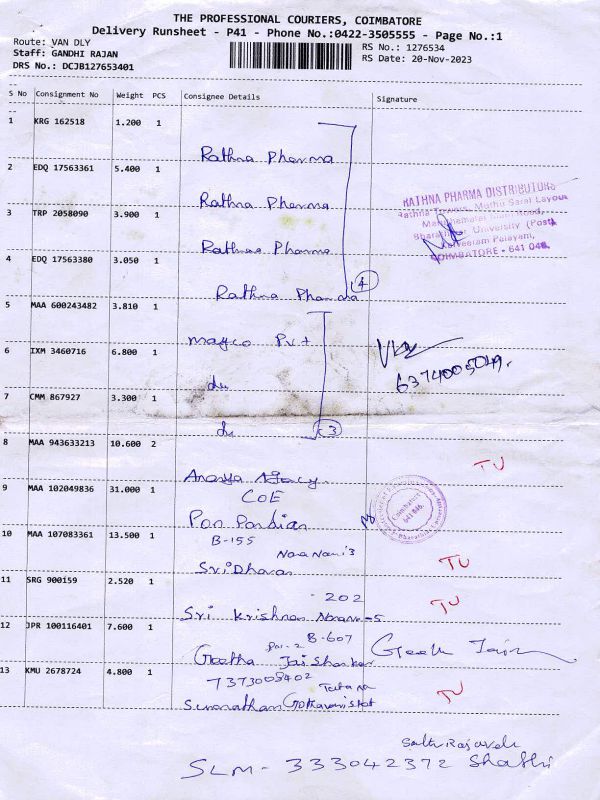 THE PROFESSIONAL COURIERS, COIMBATORE
Delivery Runsheet - P41 - Phone No.:0422-3505555 - Page No.:1
Route: VAN DLY
RS No.: 1276534
Staff: GANDHI RAJAN
RS Date: 20-Nov-2023
DRS No.: DCJB127653401
S No Consignment No Weight PCS Consignee Details Signature
1 KRG 162518 1.200 1
Rathna Pharma
2 EDQ 17563361 5.400 1
Rathna Pharma
RATHNA PHARMA DISTRIBUTORS
Rathna Towers, Muthu Saral Layout
3 TRP 2058090 3.900 1
Bharathiar University (Post)
Rathnaa Pharma
COIMBATORE - 641 046.
4 EDQ 17563380 3.050 1
4
Rathna Pharma
5 MAA 600243482 3.810 1
mayco Pvt
6 IXM 3460716 6.800 1
6374005049.
du
7 CMM 867927 3.300 1
3
du
8 MAA 943633213 10.600 2
TU
Agency
9 MAA 102049836 31.000 1
COE
Coimbatore
641 046.
Pon Pandian
10 MAA 107083361 13.500 1
B-155
TU
SriDharan
11 SRG 900159 2.520 1
202
TU
Sri Krishnan
12 JPR 100116401 7.600 1
B-607
Geetha Jai Shankar
13 KMU 2678724 4.800 1
7373008402
TU
SLM - 333042372 Shathi